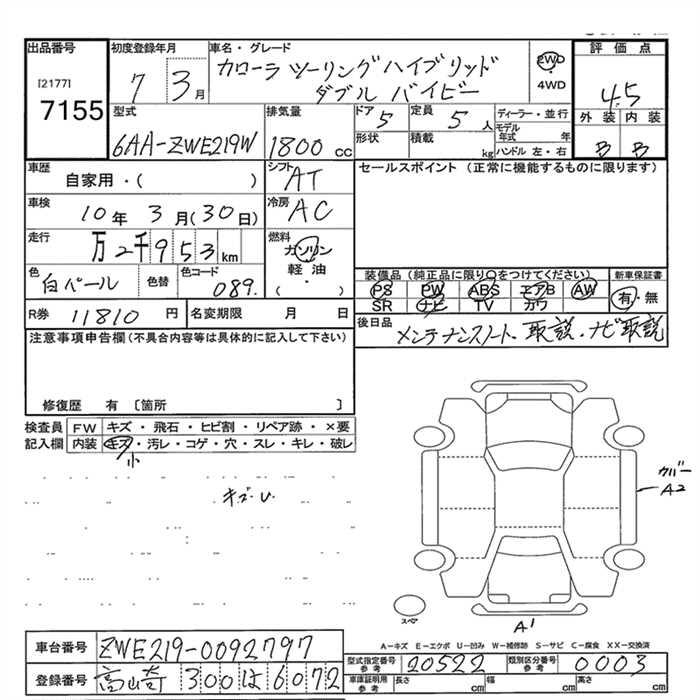 出品番号
[2177]
7155
初度登録年月
7 3月
車名・グレード
カローラ ツーリングハイブリッド
ダブルバイビー
2WD
・
4WD
評価点
4.5
外装 内装
B B
型式
6AA-ZWE219W
排気量
1800 cc
ドア
5
定員
5人
形状
積載
kg
ディーラー・並行
モデル年式 年
ハンドル 左・右
車歴
自家用・( )
シフト
AT
セールスポイント (正常に機能するものに限ります)
車検
10年 3月(30日)
冷房
AC
走行
万2千953km
燃料
ガソリン
軽油
・
( )
色
白パール
色替
色コード
089.
装備品 (純正品に限り○をつけてください)
PS PW ABS エアB AW
SR ナビ TV カワ
新車保証書
有・無
R券 11810 円
名変期限 月 日
後日品
メンテナンスノート、取説、ナビ取説
注意事項申告欄(不具合内容等は具体的に記入して下さい)
修復歴 有 〔箇所 〕
検査員
記入欄
FW キズ・飛石・ヒビ割・リペア跡・×要
内装 キズ・汚レ・コゲ・穴・スレ・キレ・破レ
小
キズ・U.
A2
スペア
A1
A-キズ E-エクボ U-凹み W-補修跡 S-サビ C-腐食 XX-交換済
車台番号 ZWE219-0092797
登録番号 高崎 300は6072
型式指定番号
参考
20522
類別区分番号
参考
0003
車庫証明用
参考
長さ cm 幅 cm 高さ cm